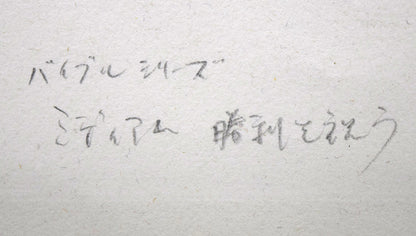 バイブルシリーズ
ミディアム 勝利を祝う